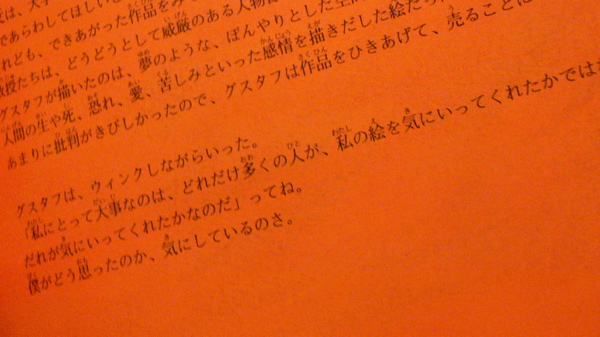 は、大学
であらわしてほしいと
れども、できあがった作品をみ
教授たちは、どうどうとして威厳のある人物
グスタフが描いたのは、夢のような、ぼんやりとした空
人間の生や死、恐れ、愛、苦しみといった感情を描きだした絵だ
あまりに批判がきびしかったので、グスタフは作品をひきあげて、売ることに
グスタフは、ウィンクしながらいった。
「私にとって大事なのは、どれだけ多くの人が、私の絵を気にいってくれたかでは
だれが気にいってくれたかなのだ」ってね。
僕がどう思ったのか、気にしているのさ。